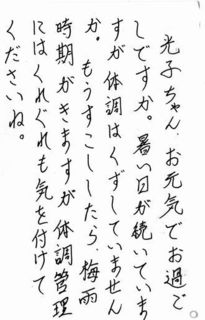 光子ちゃん、お元気でお過ご
しですか。暑い日が続いていま
すが体調はくずしていません
か。もうすこししたら、梅雨
時期がきますが体調管理
にはくれぐれも気を付けて
くださいね。